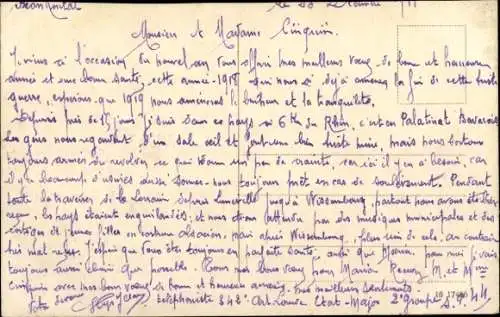 le Décembre
Monsieur & Madame Cinquin.
Je viens à l'occasion du nouvel an vous offrir mes meilleurs vœux de bonne et heureuse
année et une bonne santé, cette année 1918 qui nous a déjà amené la fin de cette triste
guerre, espérons que 1919 nous amènera le bonheur et la tranquilité.
Depuis près de 15 jours je suis dans ce pays à 6 Km du Rhin, c'est en Palatinat Bavarois
les gens nous regardent d'un sale œil et font une bien triste mine, mais nous portons
toujours armés du revolver ce qui donne un peu de crainte, car ici il y en a besoin, car
il y a beaucoup d'usines aussi sommes-nous toujours prêts en cas de soulèvement. Pendant
toute la traversée de la Lorraine depuis Lunéville jusqu'à Wissembourg, partout nous avons été bien
reçu, les pays étaient enguirlandés, et nous étions attendu par des musiques municipales et des
cortèges de jeunes filles en costume alsacien, mais après Wissembourg, plus rien de cela, au contraire
mal reçus. J'espère que vous êtes toujours en parfaite santé, ainsi que pour moi j'vais
toujours aussi bien que possible. Tous mes bons vœux pour Maria M. et Mme
Cinquin avec mes bons vœux de bonne et heureuse année. mes meilleurs sentiments
téléphoniste 242e Art. Lourde Etat-Major 2e groupe S.P. 44